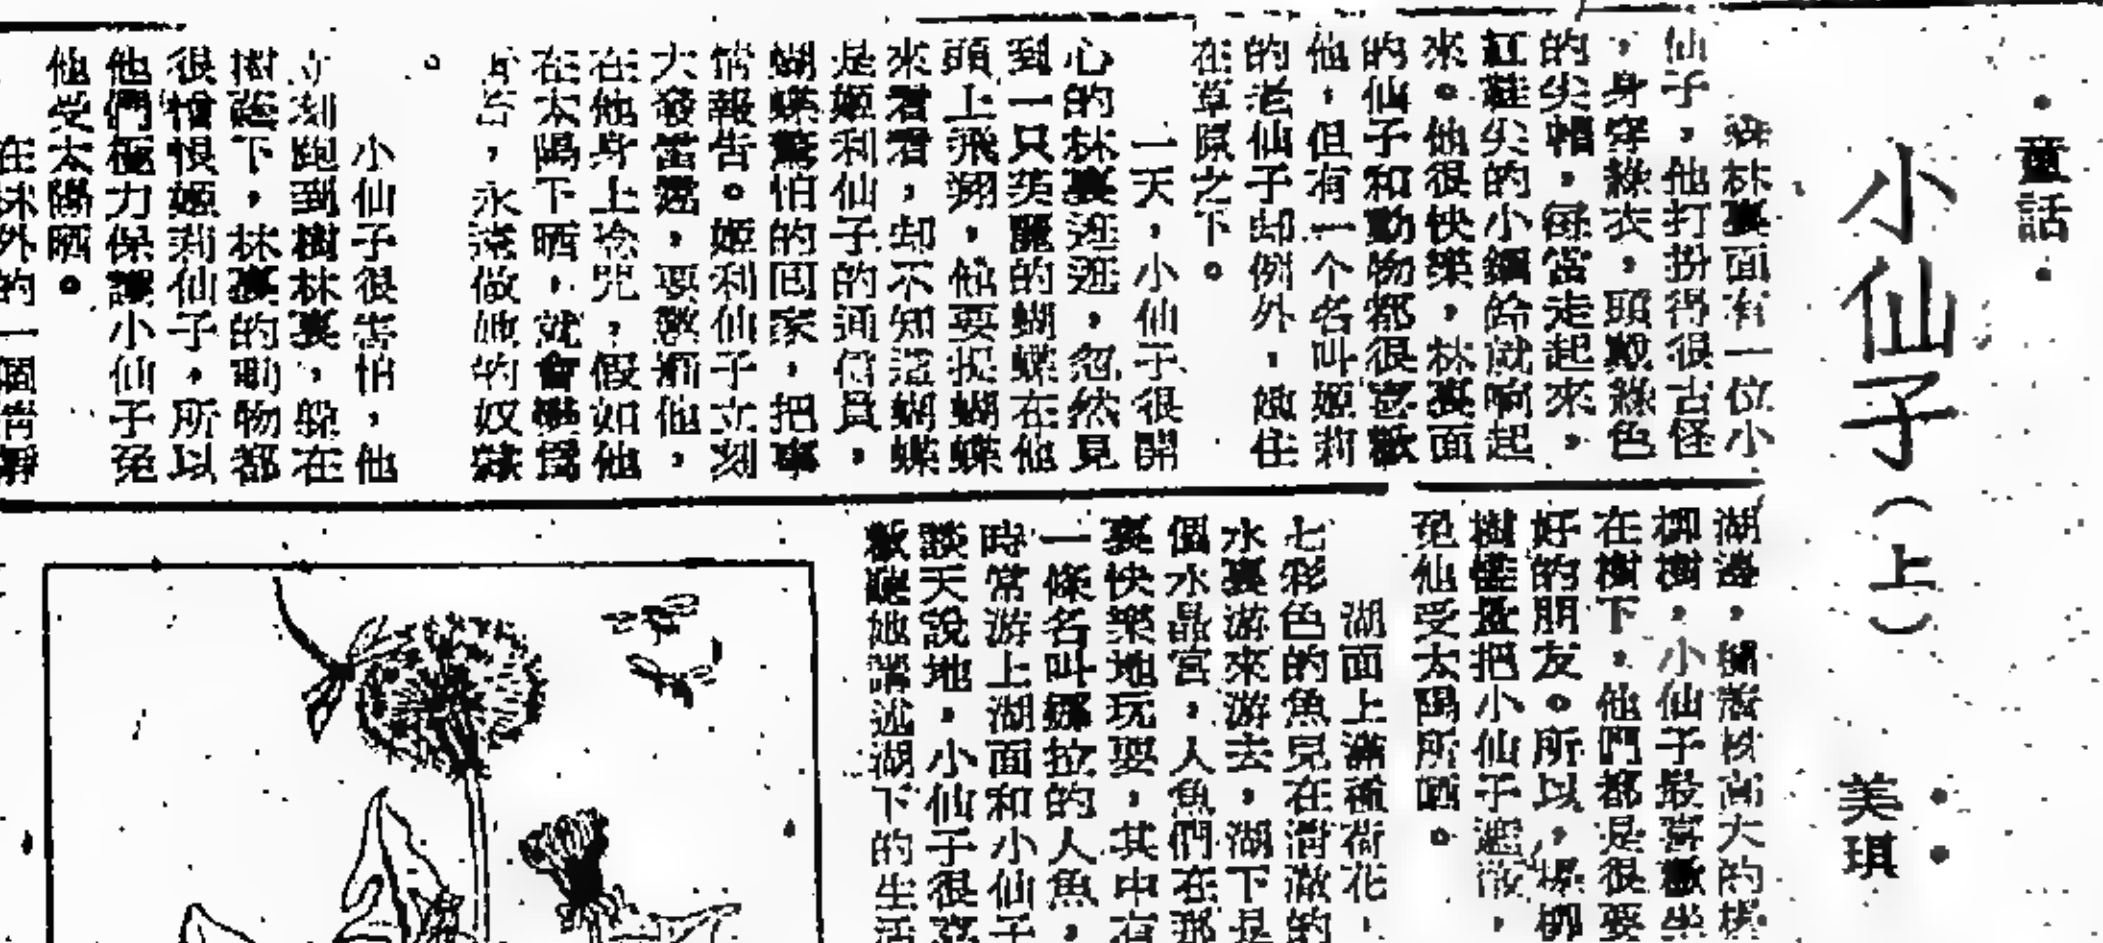 ·童話·
小仙子（上）
美琪
森林裏面有一位小
仙子，他打扮得很古怪
，身穿綠衣，頭戴綠色
的尖帽，每當走起來，
紅鞋尖的小鋼鈴就响起
來。他很快樂，林裏面
的仙子和動物都很喜歡
他，但有一个名叫姬莉
的老仙子却例外，她住
在草原之下。
一天，小仙子很開
心的林裏逛逛，忽然見
到一只美麗的蝴蝶在他
頭上飛翔，他要捉蝴蝶
來看看，却不知這蝴蝶
是姬利仙子的通信員，
蝴蝶驚怕的囘家，把事
情報告。姬利仙子立刻
大發雷霆，要懲 他，
在他身上唸咒，假如他
在太陽下晒，就會變爲
，永遠做她的奴隸
。
小仙子很害怕，他
立刻跑到樹林裏，躲在
樹蔭下，林裏的動物都
很憎恨姬莉仙子，所以
他們極力保護小仙子免
他受太陽晒。
在林外的一個清靜
湖邊， 着 高大的楊
柳樹，小仙子最喜歡坐
在樹下，他們都是很要
好的朋友。所以，楊柳
樹 把小仙子遮 ，
免他受太陽所晒。
湖面上滿 荷花，
七彩色的魚兒在清澈的
水裏游來游去，湖下是
個水晶宮，人魚們在那
裏快樂地玩耍，其中有
一條名叫娜拉的人魚，
時常游上湖面和小仙子
談天說地，小仙子很喜
歡聽她講述湖下的生活